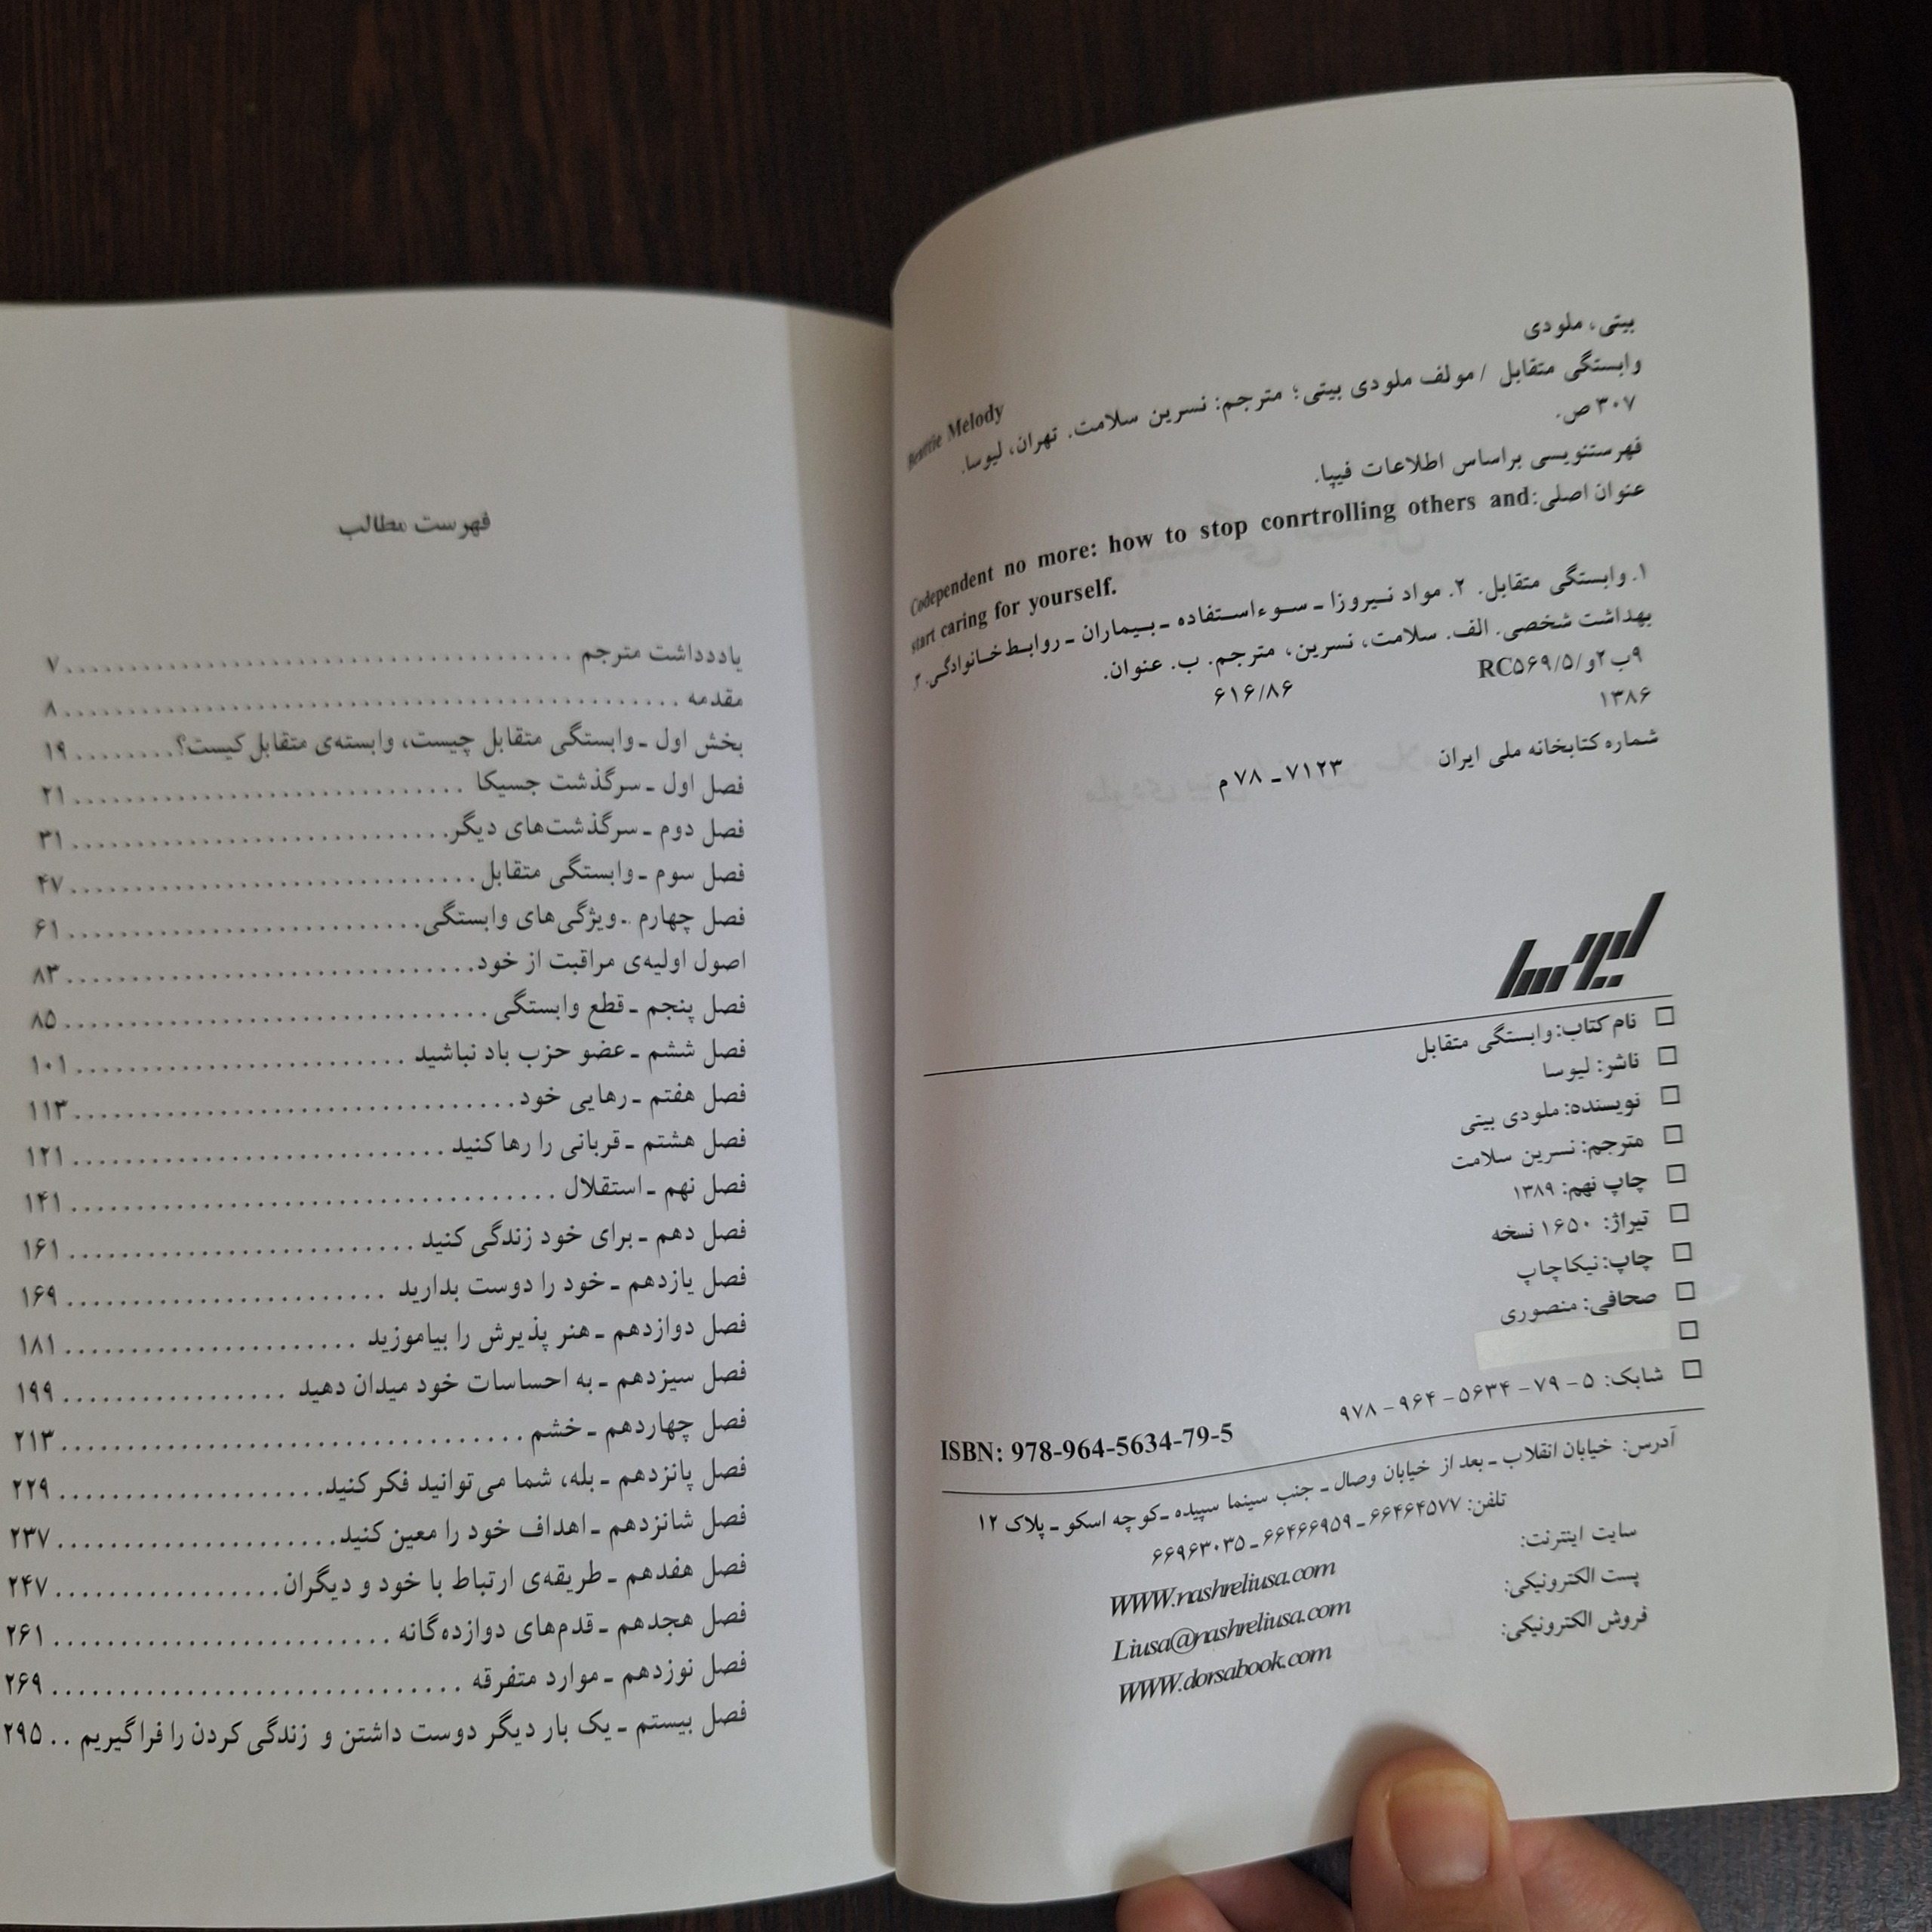 بیتی، ملودی
Beattie Melody
وابستگی متقابل / مولف ملودی بیتی؛ مترجم: نسرین سلامت. تهران، لیوسا.
۳۰۷ ص.
فهرستنویسی براساس اطلاعات فیپا.
عنوان اصلی: Codependent no more: how to stop conrtrolling others and
start caring for yourself.
۱. وابستگی متقابل. ۲. مواد نیروزا ـ سوءاستفاده ـ بیماران ـ روابط خانوادگی. ۳.
بهداشت شخصی. الف. سلامت، نسرین، مترجم. ب. عنوان.
۹ب۲و/RC۵۶۹/۵ ۶۱۶/۸۶
۱۳۸۶
شماره کتابخانه ملی ایران ۷۱۲۳ ـ ۷۸ م
لیوسا
□ نام کتاب: وابستگی متقابل
□ ناشر: لیوسا
□ نویسنده: ملودی بیتی
□ مترجم: نسرین سلامت
□ چاپ نهم: ۱۳۸۹
□ تیراژ: ۱۶۵۰ نسخه
□ چاپ: نیکاچاپ
□ صحافی: منصوری
□
□ شابک: ۵ - ۷۹ - ۵۶۳۴ - ۹۶۴ - ۹۷۸
ISBN: 978-964-5634-79-5
آدرس: خیابان انقلاب ـ بعد از خیابان وصال ـ جنب سینما سپیده ـ کوچه اسکو ـ پلاک ۱۲
تلفن: ۶۶۴۶۴۵۷۷ ـ ۶۶۴۶۶۹۵۹ ـ ۶۶۹۶۳۰۳۵
سایت اینترنت: WWW.nashreliusa.com
پست الکترونیکی: Liusa@nashreliusa.com
فروش الکترونیکی: WWW.dorsabook.com
فهرست مطالب
یادداشت مترجم ........ ۷
مقدمه ........ ۸
بخش اول ـ وابستگی متقابل چیست، وابسته‌ی متقابل کیست؟ ........ ۱۹
فصل اول ـ سرگذشت جسیکا ........ ۲۱
فصل دوم ـ سرگذشت‌های دیگر ........ ۳۱
فصل سوم ـ وابستگی متقابل ........ ۴۷
فصل چهارم ـ ویژگی‌های وابستگی ........ ۶۱
اصول اولیه‌ی مراقبت از خود ........ ۸۳
فصل پنجم ـ قطع وابستگی ........ ۸۵
فصل ششم ـ عضو حزب باد نباشید ........ ۱۰۱
فصل هفتم ـ رهایی خود ........ ۱۱۳
فصل هشتم ـ قربانی را رها کنید ........ ۱۲۱
فصل نهم ـ استقلال ........ ۱۴۱
فصل دهم ـ برای خود زندگی کنید ........ ۱۶۱
فصل یازدهم ـ خود را دوست بدارید ........ ۱۶۹
فصل دوازدهم ـ هنر پذیرش را بیاموزید ........ ۱۸۱
فصل سیزدهم ـ به احساسات خود میدان دهید ........ ۱۹۹
فصل چهاردهم ـ خشم ........ ۲۱۳
فصل پانزدهم ـ بله، شما می‌توانید فکر کنید ........ ۲۲۹
فصل شانزدهم ـ اهداف خود را معین کنید ........ ۲۳۷
فصل هفدهم ـ طریقه‌ی ارتباط با خود و دیگران ........ ۲۴۷
فصل هجدهم ـ قدم‌های دوازده‌گانه ........ ۲۶۱
فصل نوزدهم ـ موارد متفرقه ........ ۲۶۹
فصل بیستم ـ یک بار دیگر دوست داشتن و زندگی کردن را فراگیریم .. ۲۹۵